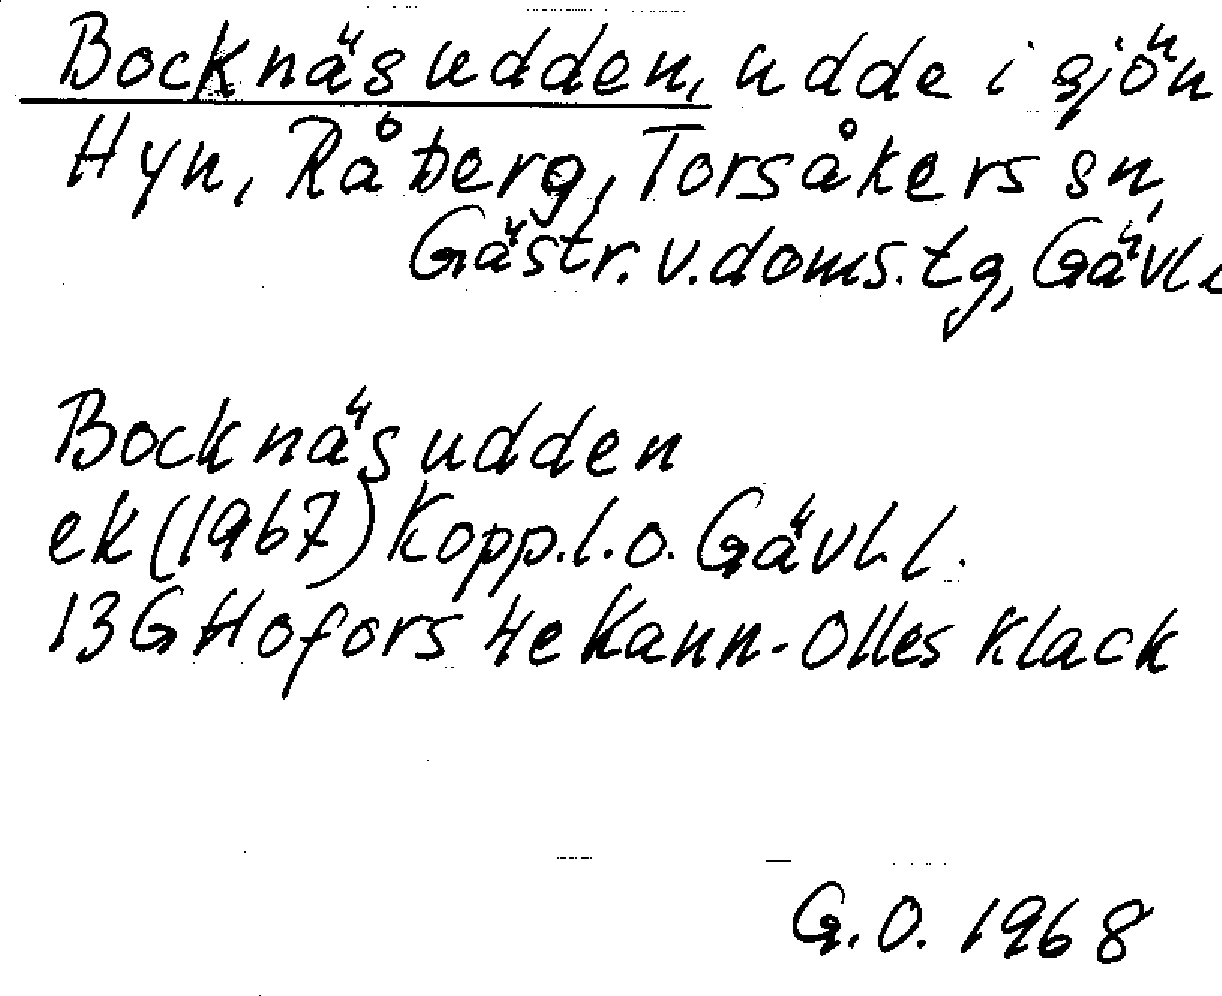 Bocknäsudden, udde i sjön
Hyn, Råberg, Torsåkers sn,
Gästr. v. doms. tg, Gävl.
Bocknäsudden
ek (1967) Kopp.l.o. Gävl.l.
13G Hofors 4e Kann-Olles Klack
G.O. 1968